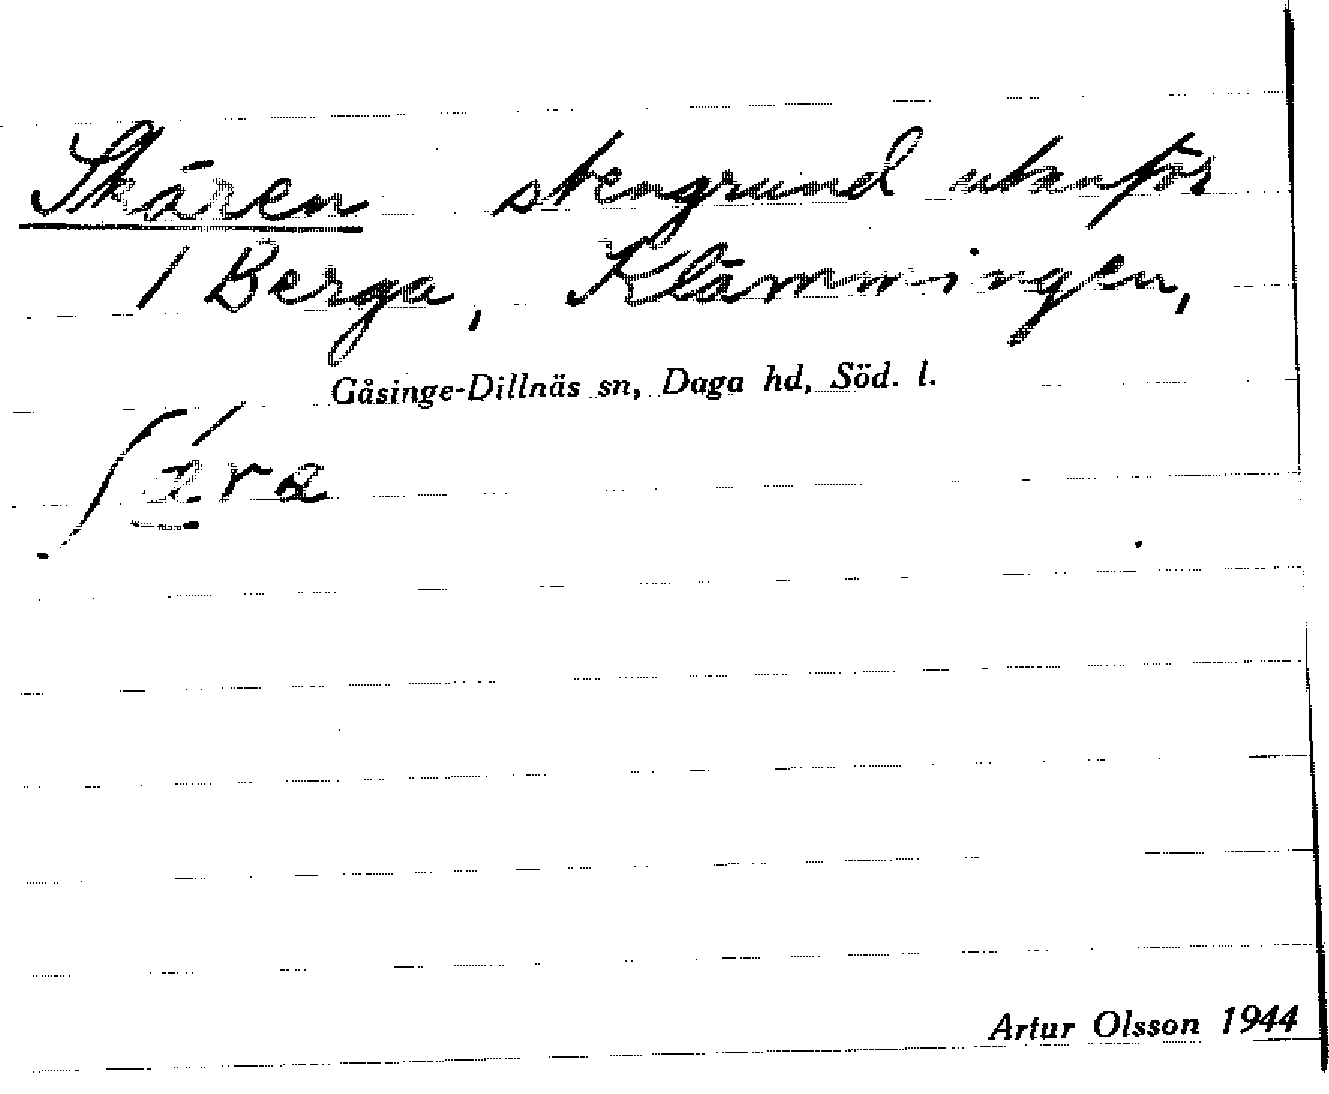 Skären stengrund utanför
/ Berga, Klämmingen,
Gåsinge-Dillnäs sn, Daga hd, Söd. l.
Artur Olsson 1944